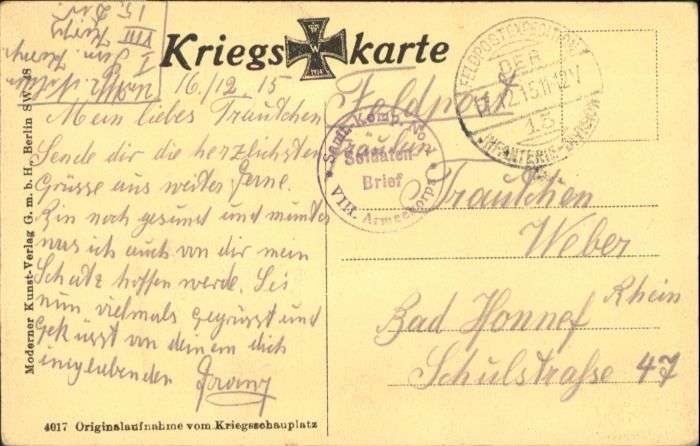 Kriegskarte
W
1914
16./12.15
Mein liebes Trautchen
Sende dir die herzlichsten
Grüsse aus weiter Ferne.
Bin noch gesund und munter
was ich auch von dir mein
Schatz hoffen werde. Sei
nun vielmals gegrüsst und
geküsst von deinem dich
liebenden Franz
Feldpost
Fräulein
Trautchen
Weber
Bad Honnef Rhein
Schulstrasse 47
Sanit. Komp. No. 1
Soldaten-
Brief
VIII. Armeekorps
FELDPOSTEXPEDITION
DER
17.12.15.11-12V
15
INFANTERIE-DIVISION
I San. Komp.
VIII
15. Div.
Moderner Kunst-Verlag G. m. b. H., Berlin SW. 48
4017 Originalaufnahme vom Kriegsschauplatz